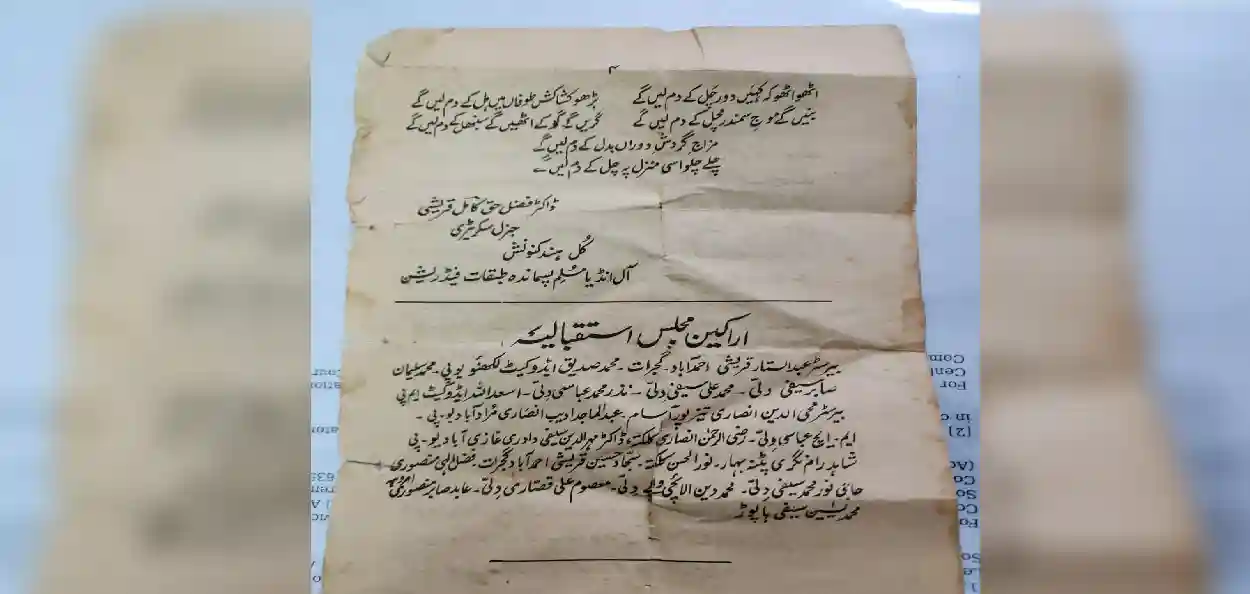 ۴
اٹھو اٹھو کہ کہیں دور چل کے دم لیں گے بڑھو کشاکش طوفاں میں ہل کے دم لیں گے
بنیں گے موجِ سمندر مچل کے دم لیں گے گریں گے گو کے اٹھیں گے سنبھل کے دم لیں گے
مزاجِ گردشِ دوراں بدل کے دم لیں گے
چلے چلو اسی منزل پہ چل کے دم لیں گے
ڈاکٹر فضل حق کامل قریشی
جنرل سکریٹری
کُل ہند کنونشن
آل انڈیا مُسلِم پسماندہ طبقات فیڈریشن
اراکین مجلس استقبالیہ
بیرسٹر عبدالستار قریشی احمد آباد۔ گجرات۔ محمد صدیق ایڈوکیٹ لکھنؤ یو پی۔ محمد علیان
صابر سیفی دلّی۔ محمد علی سیفی دلّی۔ نذر محمد عباسی دِلّی۔ اسعد اللہ ایڈوکیٹ ایم پی
بیرسٹر محی الدین انصاری تیز پور آسام۔ عبدالماجد ادیب انصاری مُراد آباد یو۔ پی۔
ایم۔ ایچ عباسی دِلّی۔ رضی الرحمٰن انصاری کلکتہ، ڈاکٹر مہر الدین سیفی دادری غازی آباد یو۔ پی
شاہد رام نگری پٹنہ بہار۔ نور الحسن کلکتہ۔ سجّاد حسین قریشی احمد آباد گجرات فضل الہٰی منصوری
حاجی نور محمد سیفی دلّی۔ محمد دین الائچی والے دِلّی۔ معصوم علی قصّاری دِلّی۔ عابد صابر منصوری
محمد یٰسین سیفی ہاپوڑ
Com
Cent
For
in c
[2]
(Ac
Co
So
Co
Fo